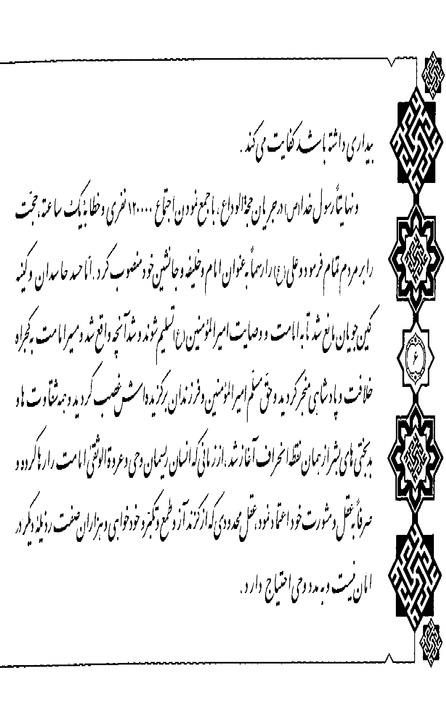 بیداری داشته باشد کفایت می‌کند.
و نهایتاً رسول خدا(ص) در جریان حجةالوداع، با جمع نمودن اجتماع ۱۲۰۰۰۰ نفری و خطابه یک ساعته، حجّت
را بر مردم تمام فرمود و علی(ع) را رسماً به عنوان امام و خلیفه و جانشین خود منصوب کرد. امّا حسد حاسدان و کینه
کین‌جویان مانع شد تا به امامت و وصایت امیرالمؤمنین(ع) تسلیم شوند و شد آنچه واقع شد و مسیر امامت به کجراه
خلافت و پادشاهی منجر گردید و حقّ مسلّم امیرالمؤمنین و فرزندان برگزیده‌اش غصب گردید و همه شقاوت‌ها و
بدبختی‌های بشر از همان نقطه انحراف آغاز شد، از زمانی که انسان ریسمان وحی و عروةالوثقی امامت را رها کرده و
صرفاً به عقل و مشورت خود اعتماد نمود، عقل محدودی که از گزند آز و طمع و تکبّر و خودخواهی و هزاران صفت رذیله دیگر در
امان نیست و به مدد وحی احتیاج دارد.
۶